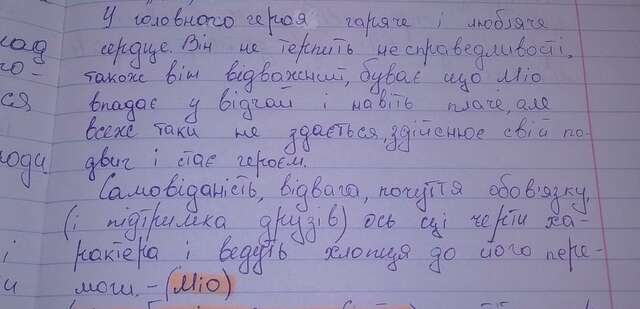 У головного героя гаряче і любляче
рад серцце. Він не терпить несправедливості,
го- також він відважний, буває що Міо
ся, впадає у відчай і навіть плаче, але
всеж таки не здається, здійснює свій по-
роди двиг і стає героєм.
Самовіданість, відвага, почуття обов'язку,
(і підтримка друзів) ось ці черти ха-
і рактера і ведуть хлопця до його пере-
и моги. - (Міо)